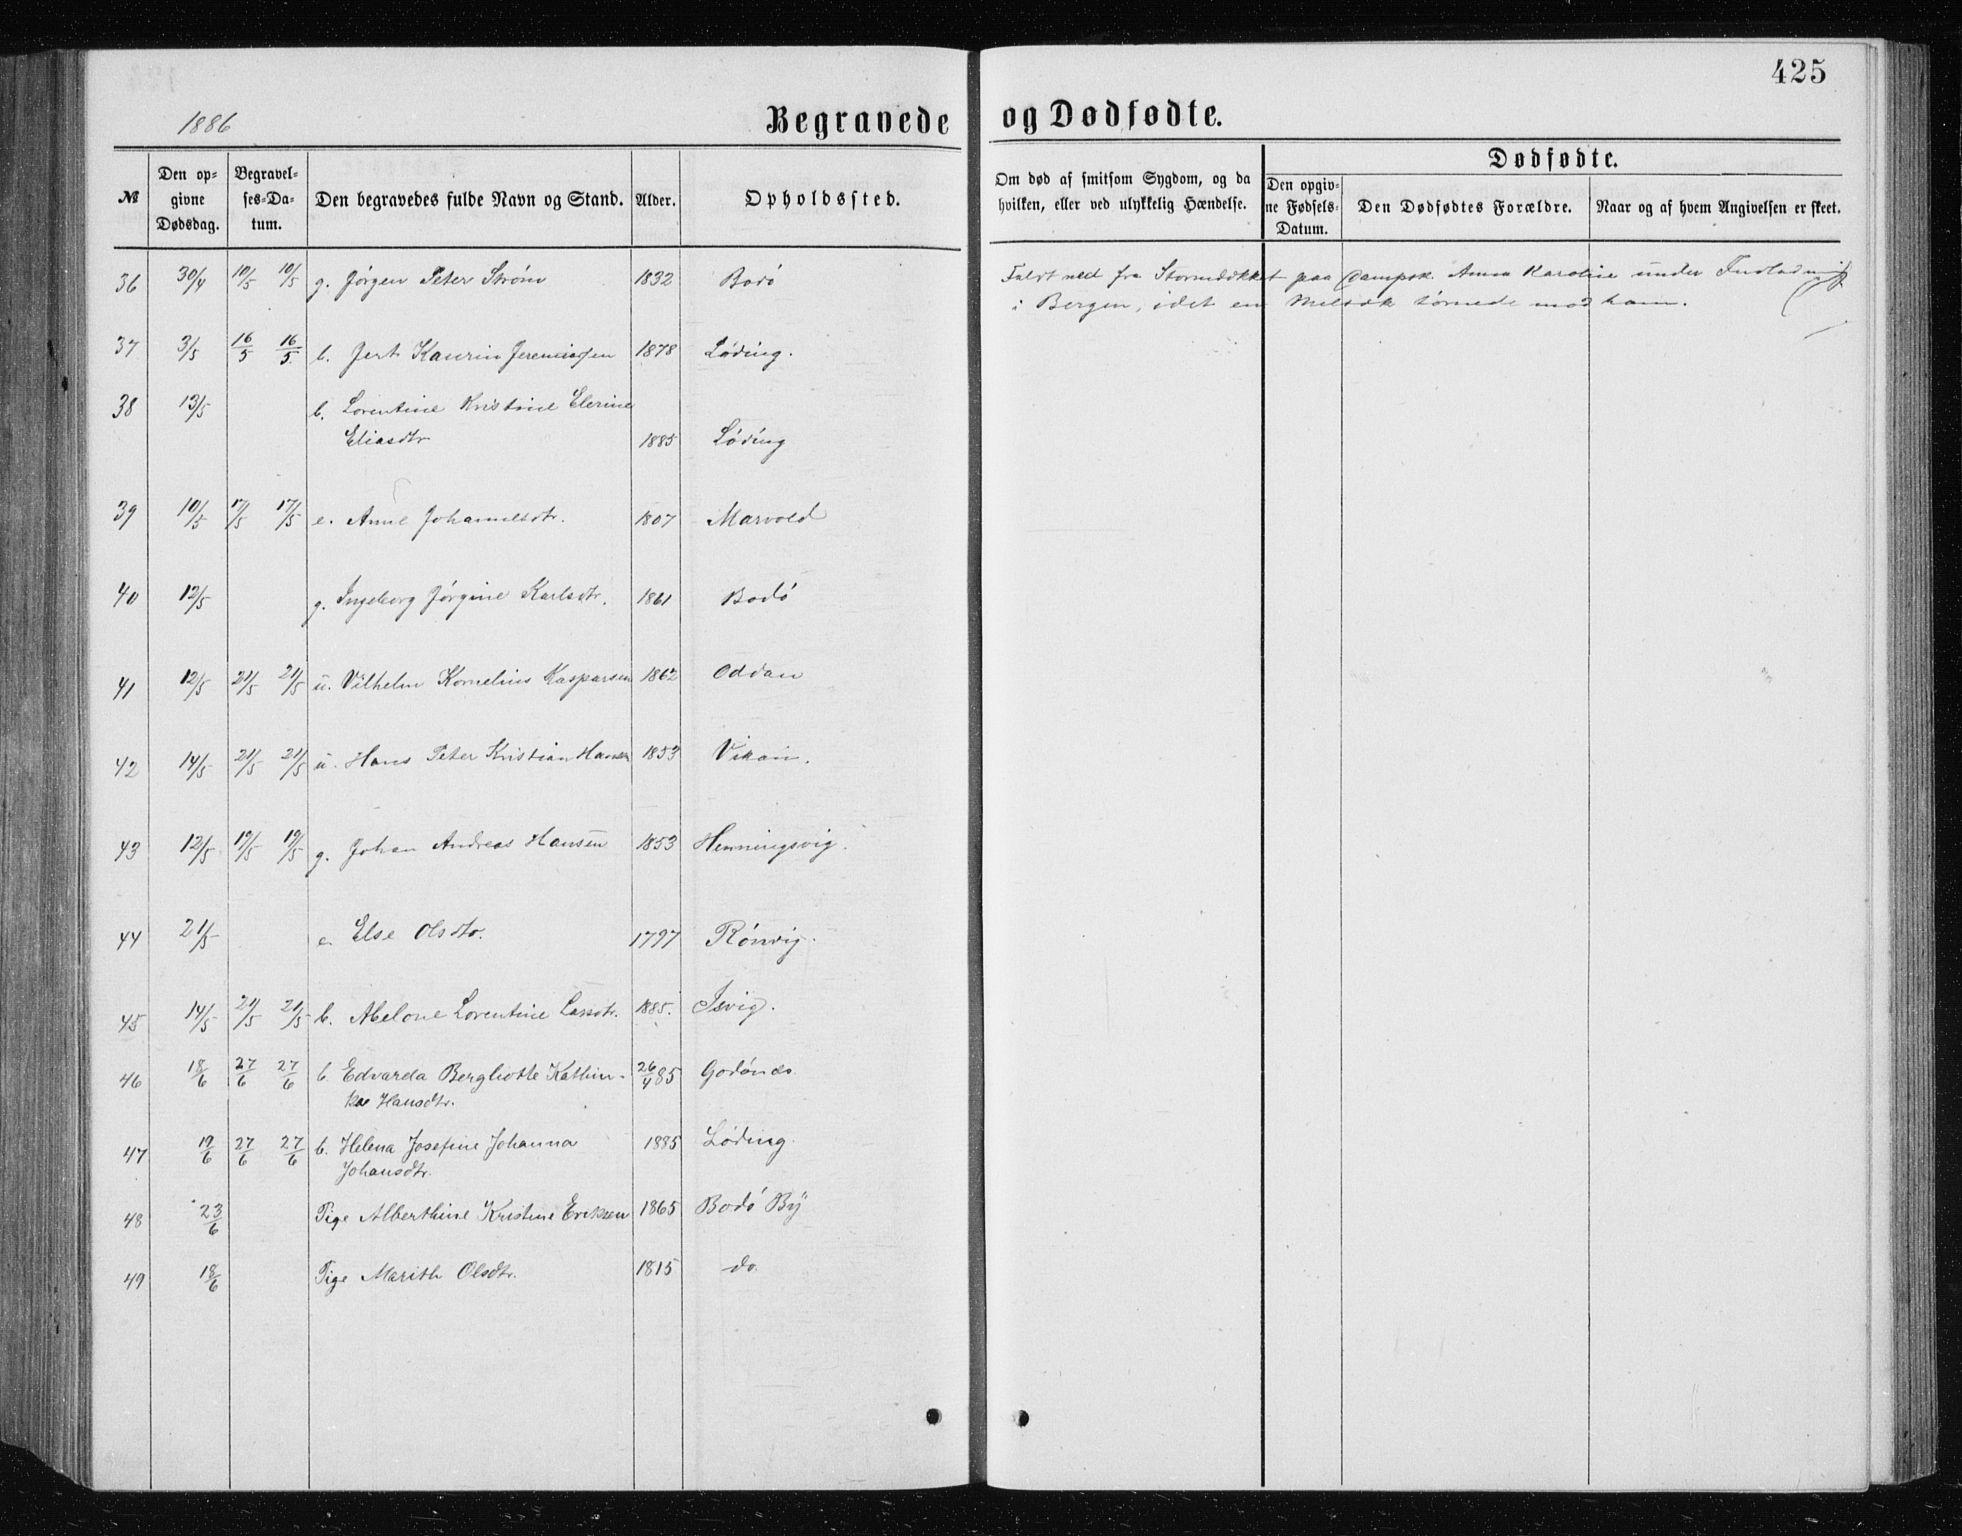 425
1886
Begravede og Dødfødte.
№
Den opgivne Dødsdag.
Begravelses-Datum.
Den begravedes fulde Navn og Stand.
Alder.
Opholdssted.
Om død af smitsom Sygdom, og da hvilken, eller ved ulykkelig Hændelse.
Dødfødte.
Den opgivne Fødsels-Datum.
Den Dødfødtes Forældre.
Naar og af hvem Angivelsen er skeet.
36 30/4 10/5 10/5 g. Jørgen Peter Strøm 1832 Bodø Faldt ned fra Stormdækket paa Dampsk. Anna Karoline under Indladning
i Bergen, idet en Melsæk tørnede mod ham.
37 3/5 16/5 16/5 b. Jert Kaurin Jeremiassen 1878 Løding.
38 13/5 b. Lorentine Kristine Elerine
Eliasdtr 1885 Løding
39 10/5 17/5 17/5 e. Anne Johannesdtr. 1807 Marvold
40 12/5 g. Ingeborg Jørgine Karlsdtr. 1861 Bodø
41 12/5 21/5 21/5 u. Vilhelm Kornelius Kasparsen 1862 Oddan
42 14/5 21/5 21/5 u. Hans Peter Kristian Hansen 1853 Vikan.
43 12/5 19/5 19/5 g. Johan Andreas Hansen 1853 Henningsvig.
44 21/5 e. Else Olsdtr. 1797 Rønvig.
45 14/5 21/5 21/5 b. Abelone Lorentine Larsdtr. 1885. Isvig.
46 18/6 27/6 27/6 b. Edvarda Bergliotte Kathin-
ka Hansdtr. 26/4 85 Godønes.
47 19/6 27/6 27/6 b. Helena Josefine Johanna 1885 Løding.
Johansdtr.
48 23/6 Pige Alberthine Kristine Eriksen 1865 Bodø By
49 18/6 Pige Marith Olsdtr. 1815 do.